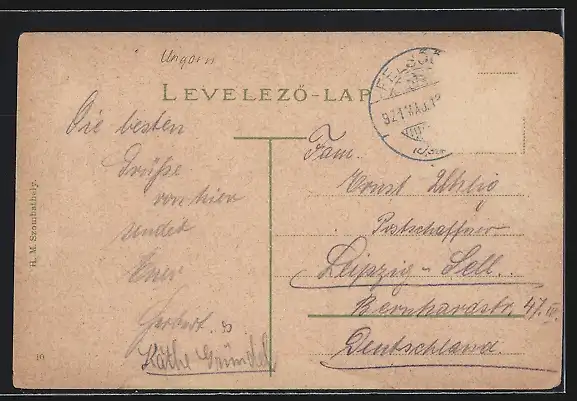 Ungarn
LEVELEZŐ-LAP
FELSŐ
921 MÁJ. 12
Die besten
Grüße
von hier
sendet
Euer
Herbert u.
Käthe Gründel
Fam.
Ernst Uhlig
Postschaffner
Leipzig - Sell..
Bernhardstr. 47. III.
Deutschland.
H. M. Szombathely.
10